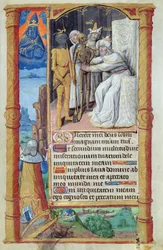 iserere mei deus scdm
magnam miam tuam Et
secundum multitudine
miserationum tuarum dele
iniquitatem meam
Amplius laua me ab
iniquitate mea et a peccato
meo munda me
iniquitatem meam
ego cognosco et peccatum meum